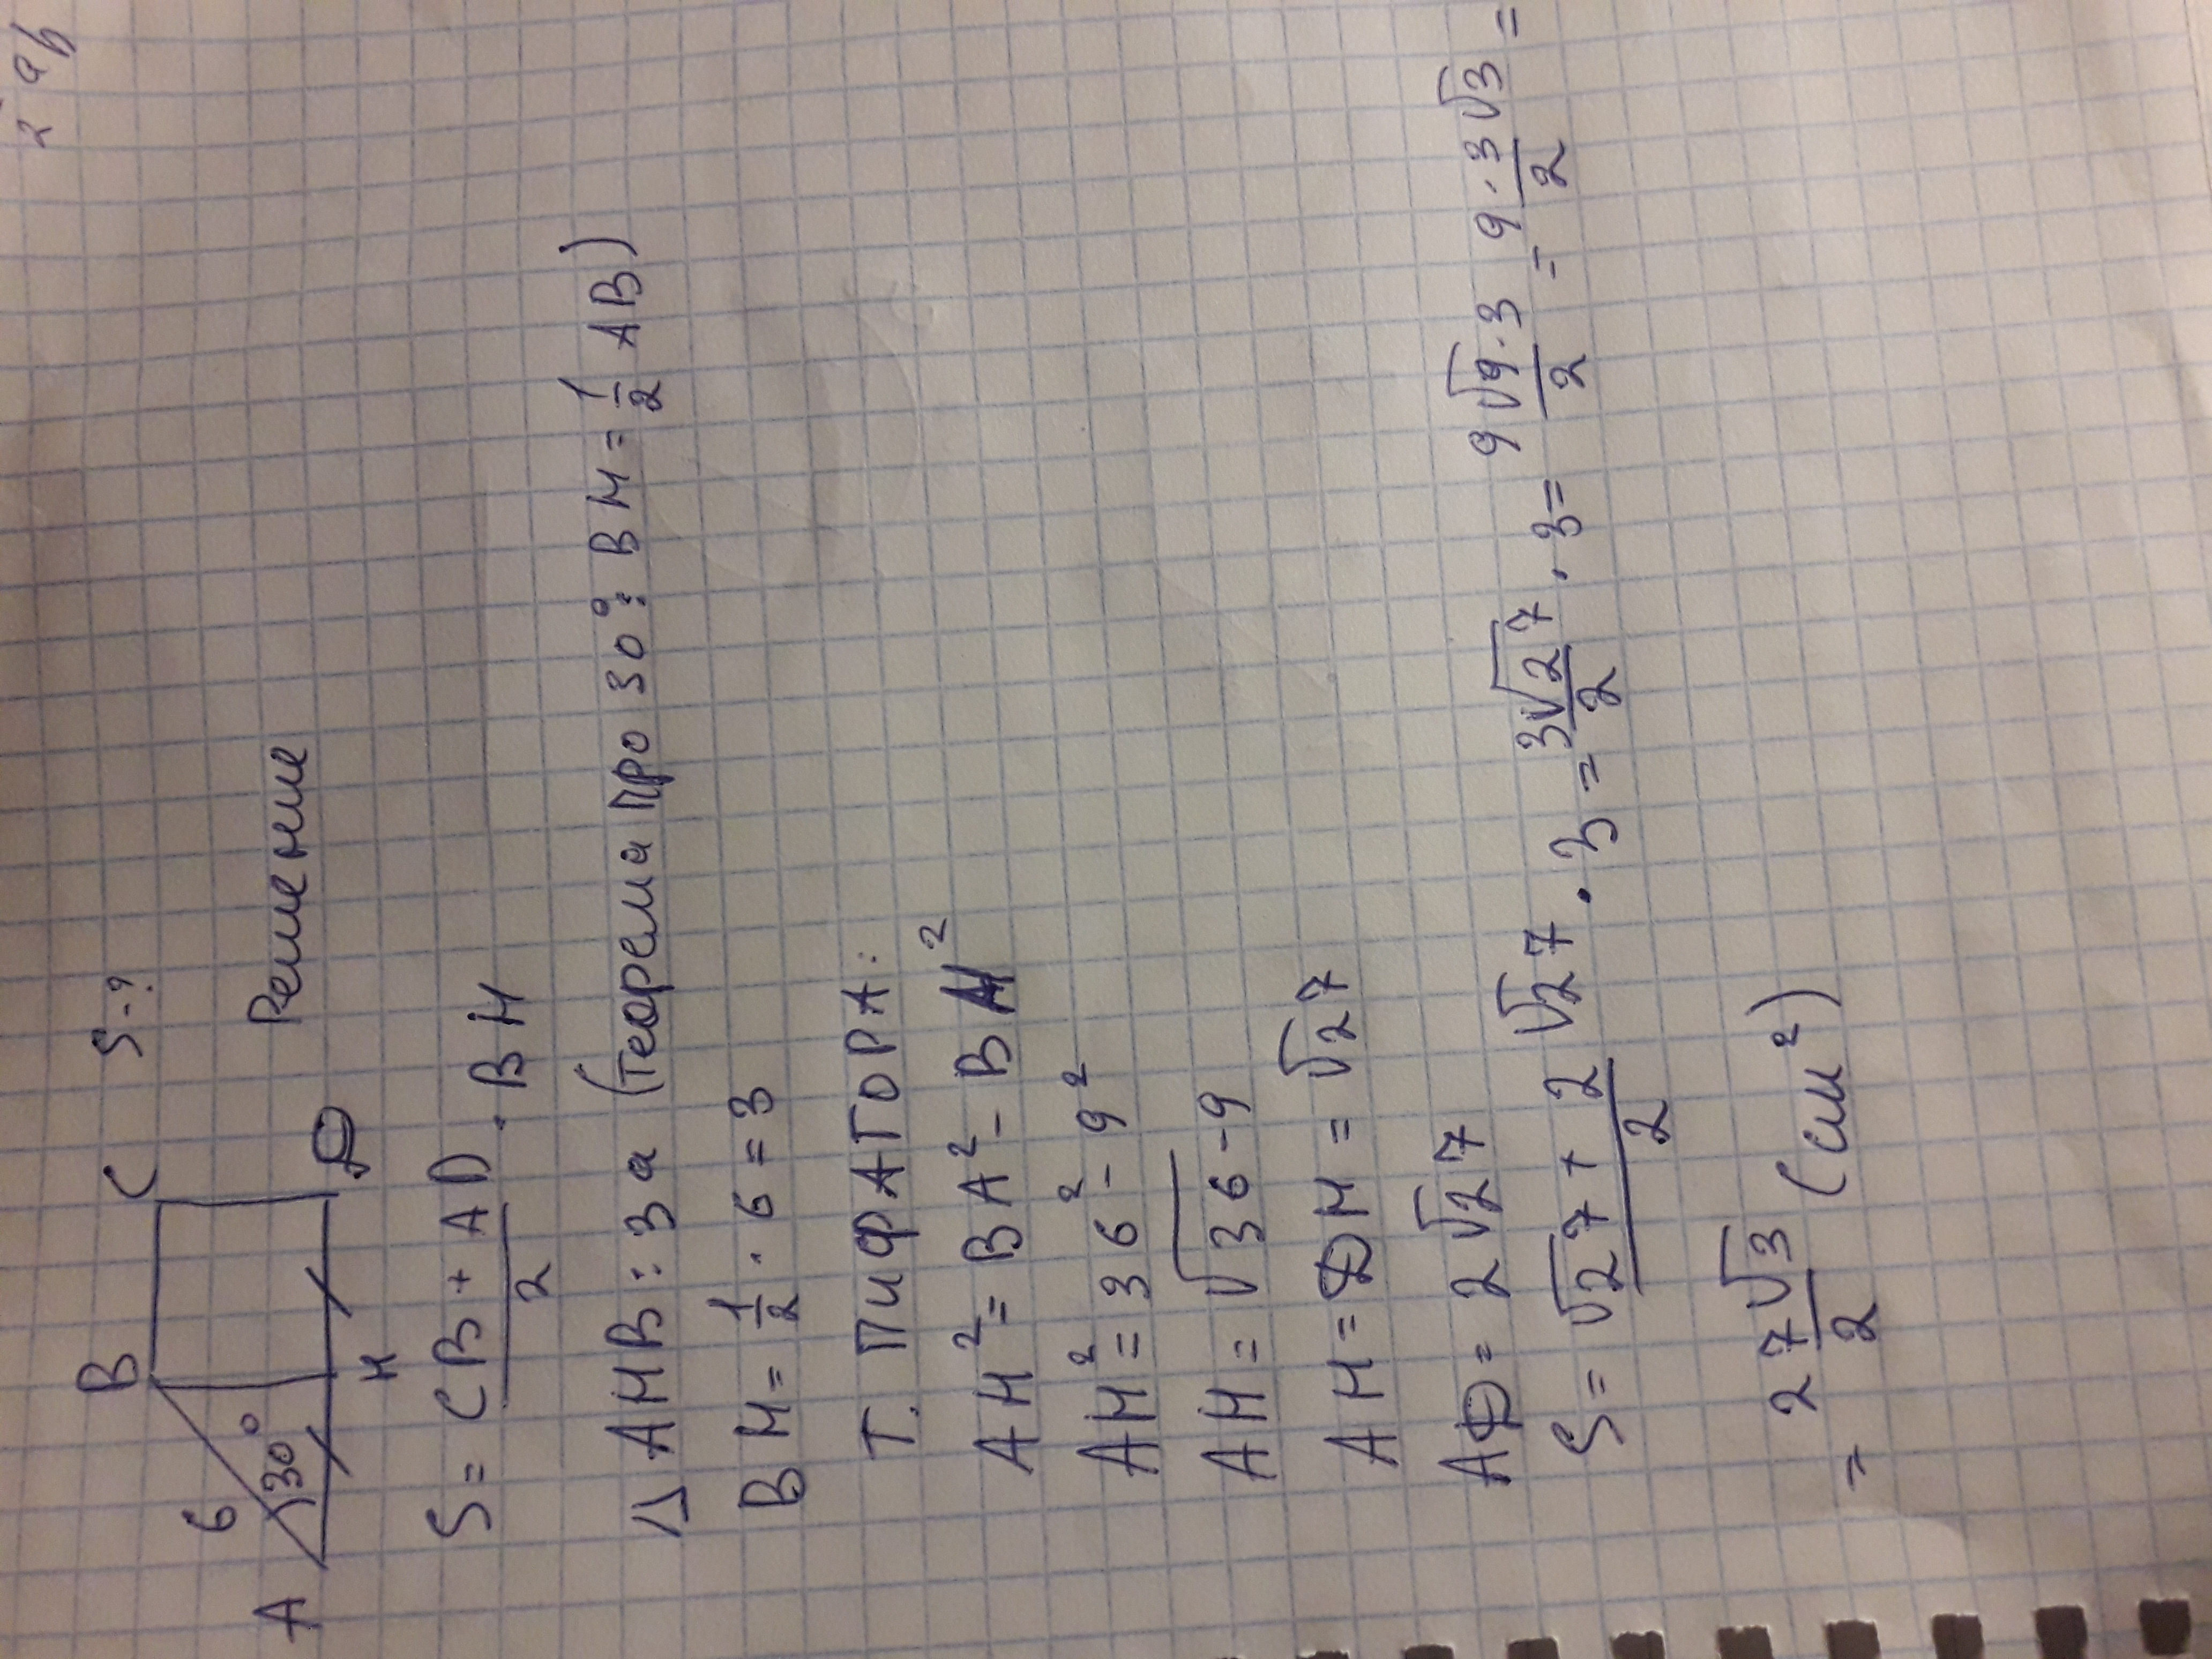 S-?
B C
6
30°
A H D
Решение
S = (CB + AD)/2 · BH
Δ AHB: За (теорема про 30°: BH = 1/2 AB)
BH = 1/2 · 6 = 3
Т. ПифАГОРА:
AH² = BA² - BH²
AH² = 36² - 9²
AH = √36-9
AH = DH = √27
AD = 2√27
S = (√27 + 2√27)/2 · 3 = 3√27/2 · 3 = 9√9·3/2 = 9·3√3/2 =
= 27√3/2 (см²)